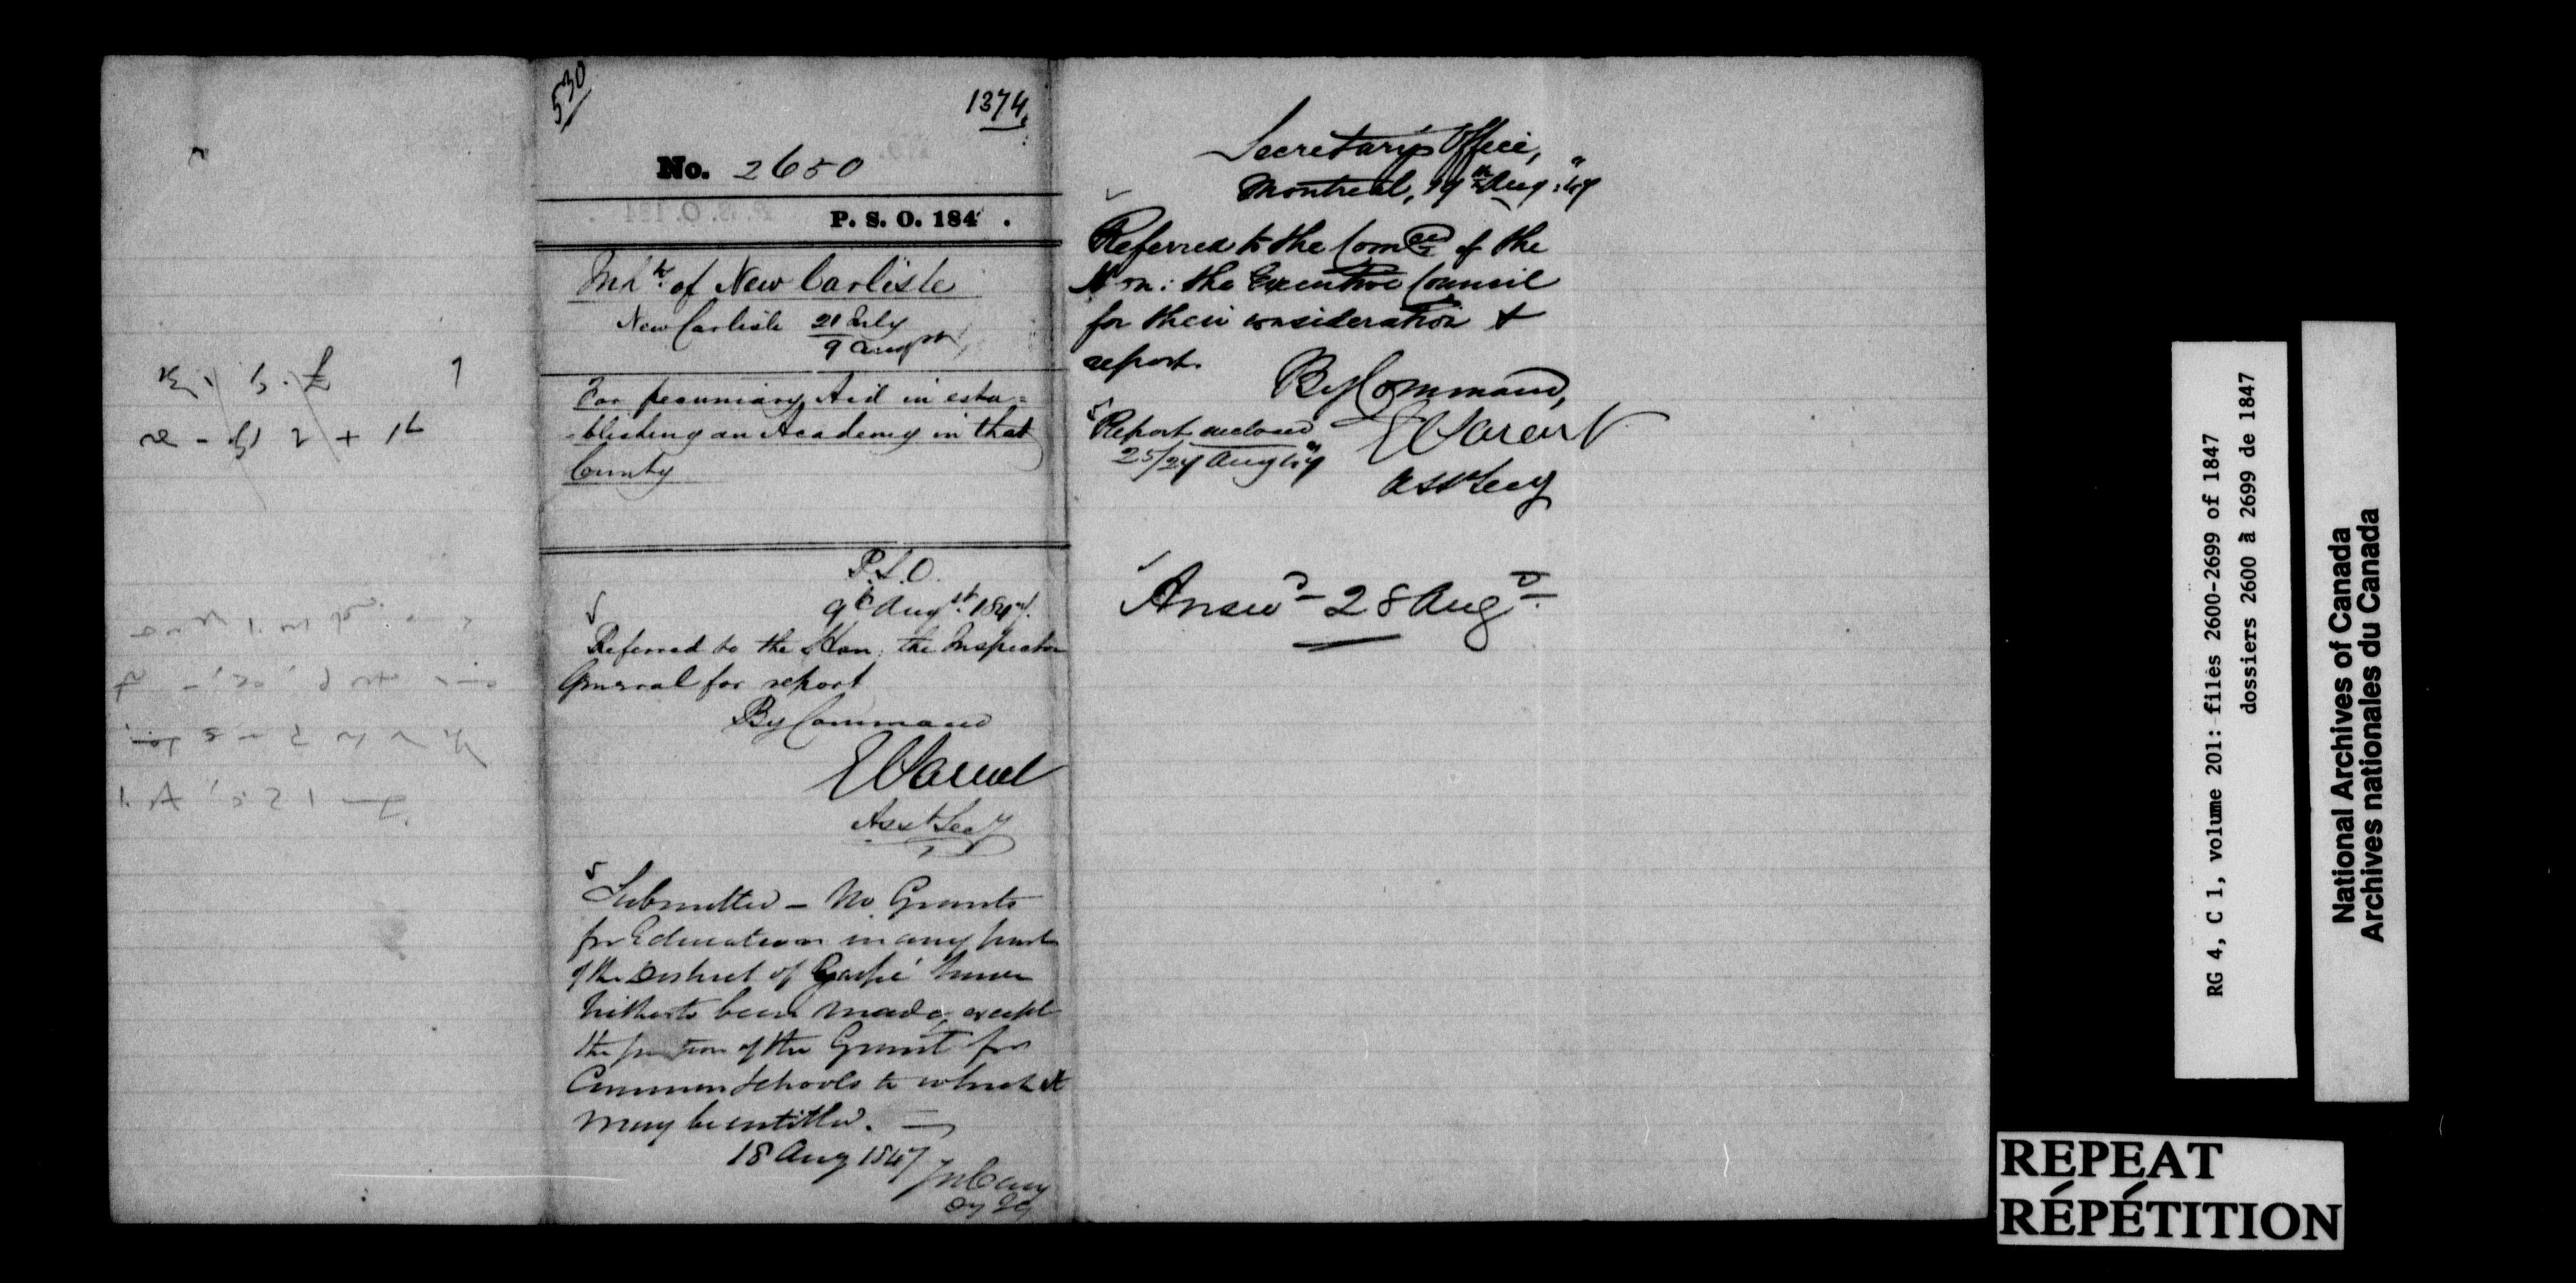 530
1374
No. 2650
P. S. O. 184 .
Inhts. of New Carlisle
New Carlisle 21 July
9 August
For pecuniary Aid in esta=
=blishing an Academy in that
County
P.S.O.
9th Augst. 1847.
Referred to the Hon: the Inspector
General for report
By Command
E Parent
Asst Secy
Submitted - No Grants
for Education in any part
of the District of Gaspé have
hitherto been made, except
the portion of the Grant for
Common Schools to which it
may be entitled. —
18 Aug 1847
Jos Cary
Dy IG
Secretary's Office,
Montreal, 19th Aug: 47
Referred to the Comee of the
Hon: the Executive Council
for their consideration &
report.
By Command,
E Parent
Asst Secy
Report enclosed
25/27 Aug 47
Answd 28 Augt.
RG 4, C 1, volume 201: files 2600-2699 of 1847
dossiers 2600 à 2699 de 1847
National Archives of Canada
Archives nationales du Canada
REPEAT
RÉPÉTITION